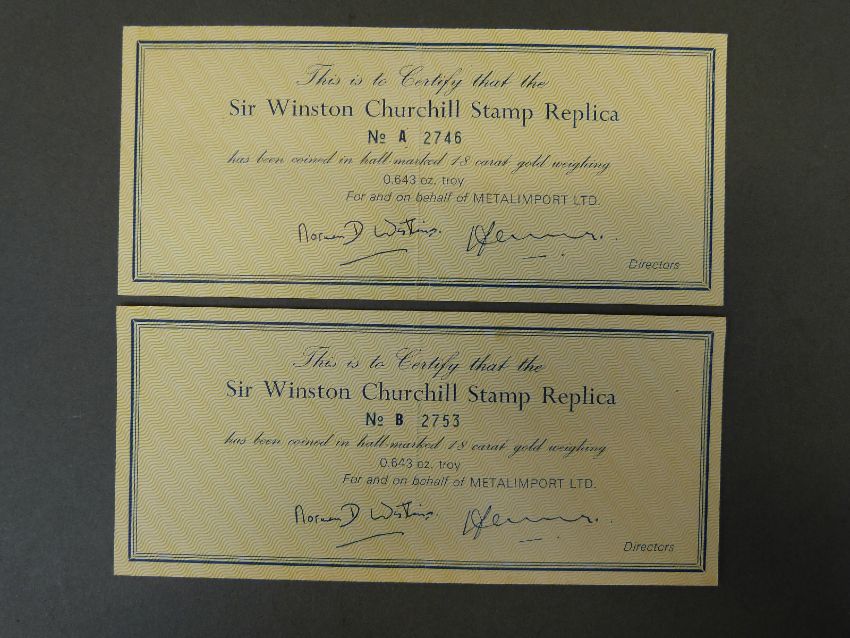 This is to Certify that the
Sir Winston Churchill Stamp Replica
No A 2746
has been coined in hall-marked 18 carat gold weighing
0.643 oz. troy
For and on behalf of METALIMPORT LTD.
Norman D Watkins.
Directors
This is to Certify that the
Sir Winston Churchill Stamp Replica
No B 2753
has been coined in hall-marked 18 carat gold weighing
0.643 oz. troy
For and on behalf of METALIMPORT LTD.
Norman D Watkins.
Directors